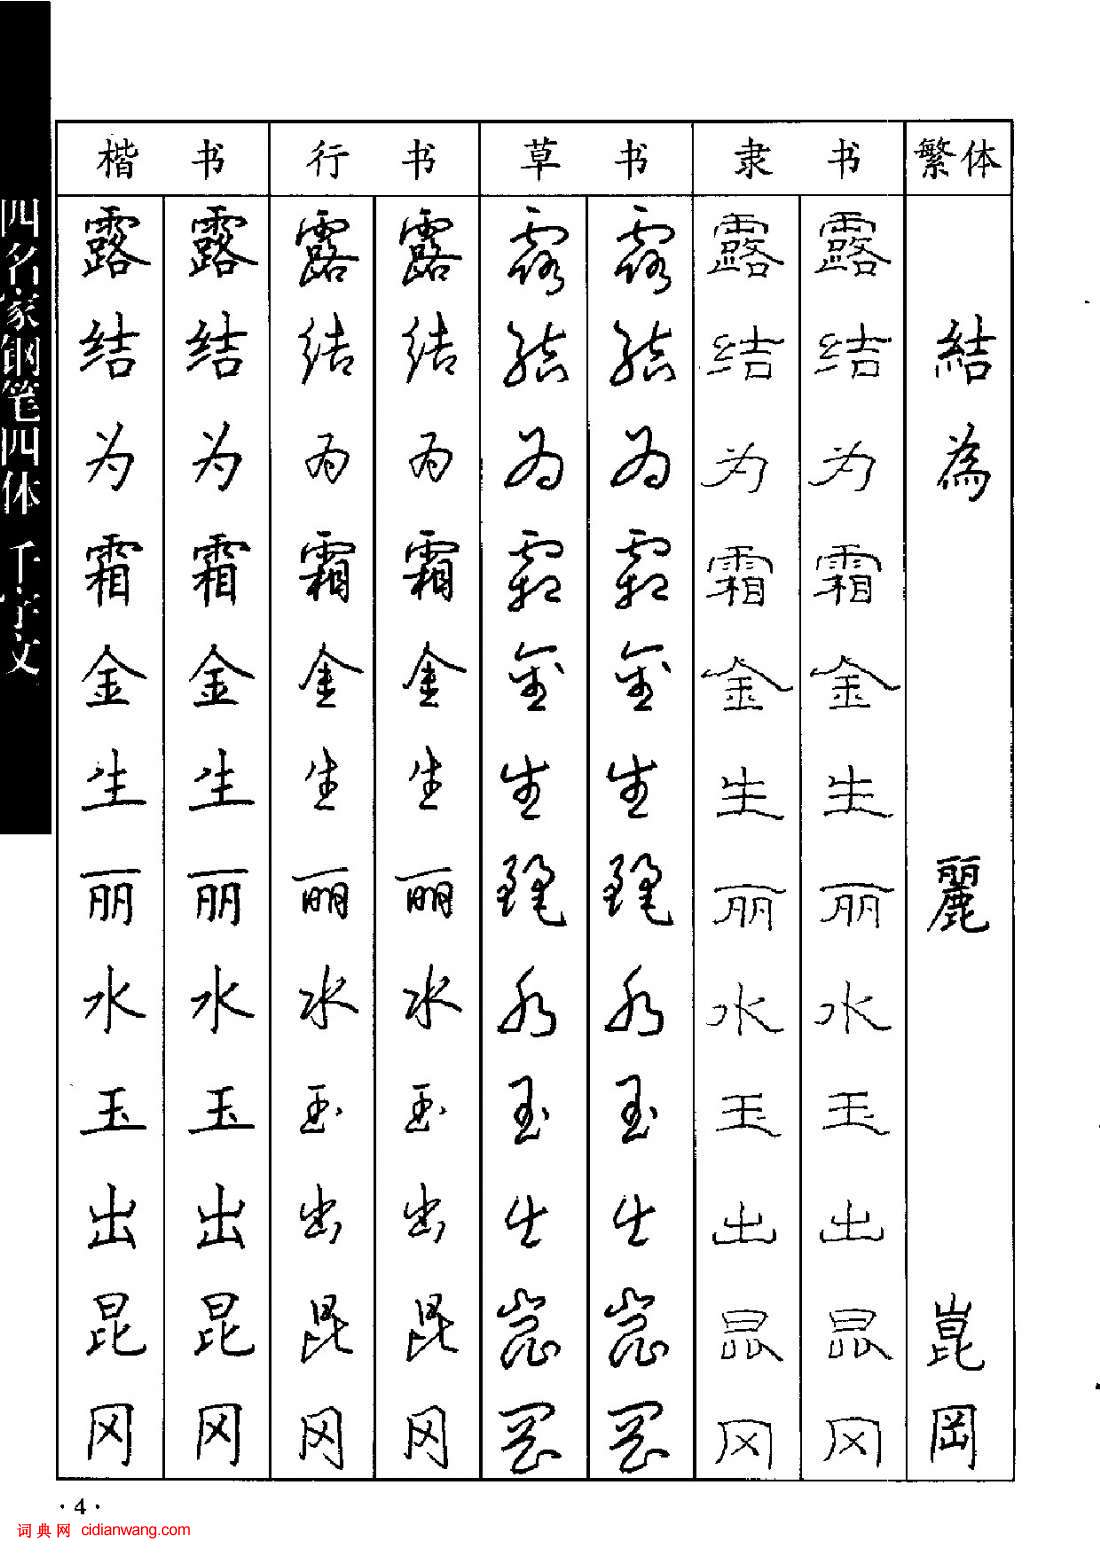 四名家钢笔四体 千字文
楷书 行书 草书 隶书 繁体
露 露 露 露 露 露 露 露
结 结 结 结 结 结 结 结 結
为 为 为 为 为 为 为 为 為
霜 霜 霜 霜 霜 霜 霜 霜
金 金 金 金 金 金 金 金
生 生 生 生 生 生 生 生
丽 丽 丽 丽 麗 麗 丽 丽 麗
水 水 水 水 水 水 水 水
玉 玉 玉 玉 玉 玉 玉 玉
出 出 出 出 出 出 出 出
昆 昆 昆 昆 崑 崑 昆 昆 崑
冈 冈 冈 冈 岡 岡 冈 冈 岡
·4·
词典网 cidianwang.com